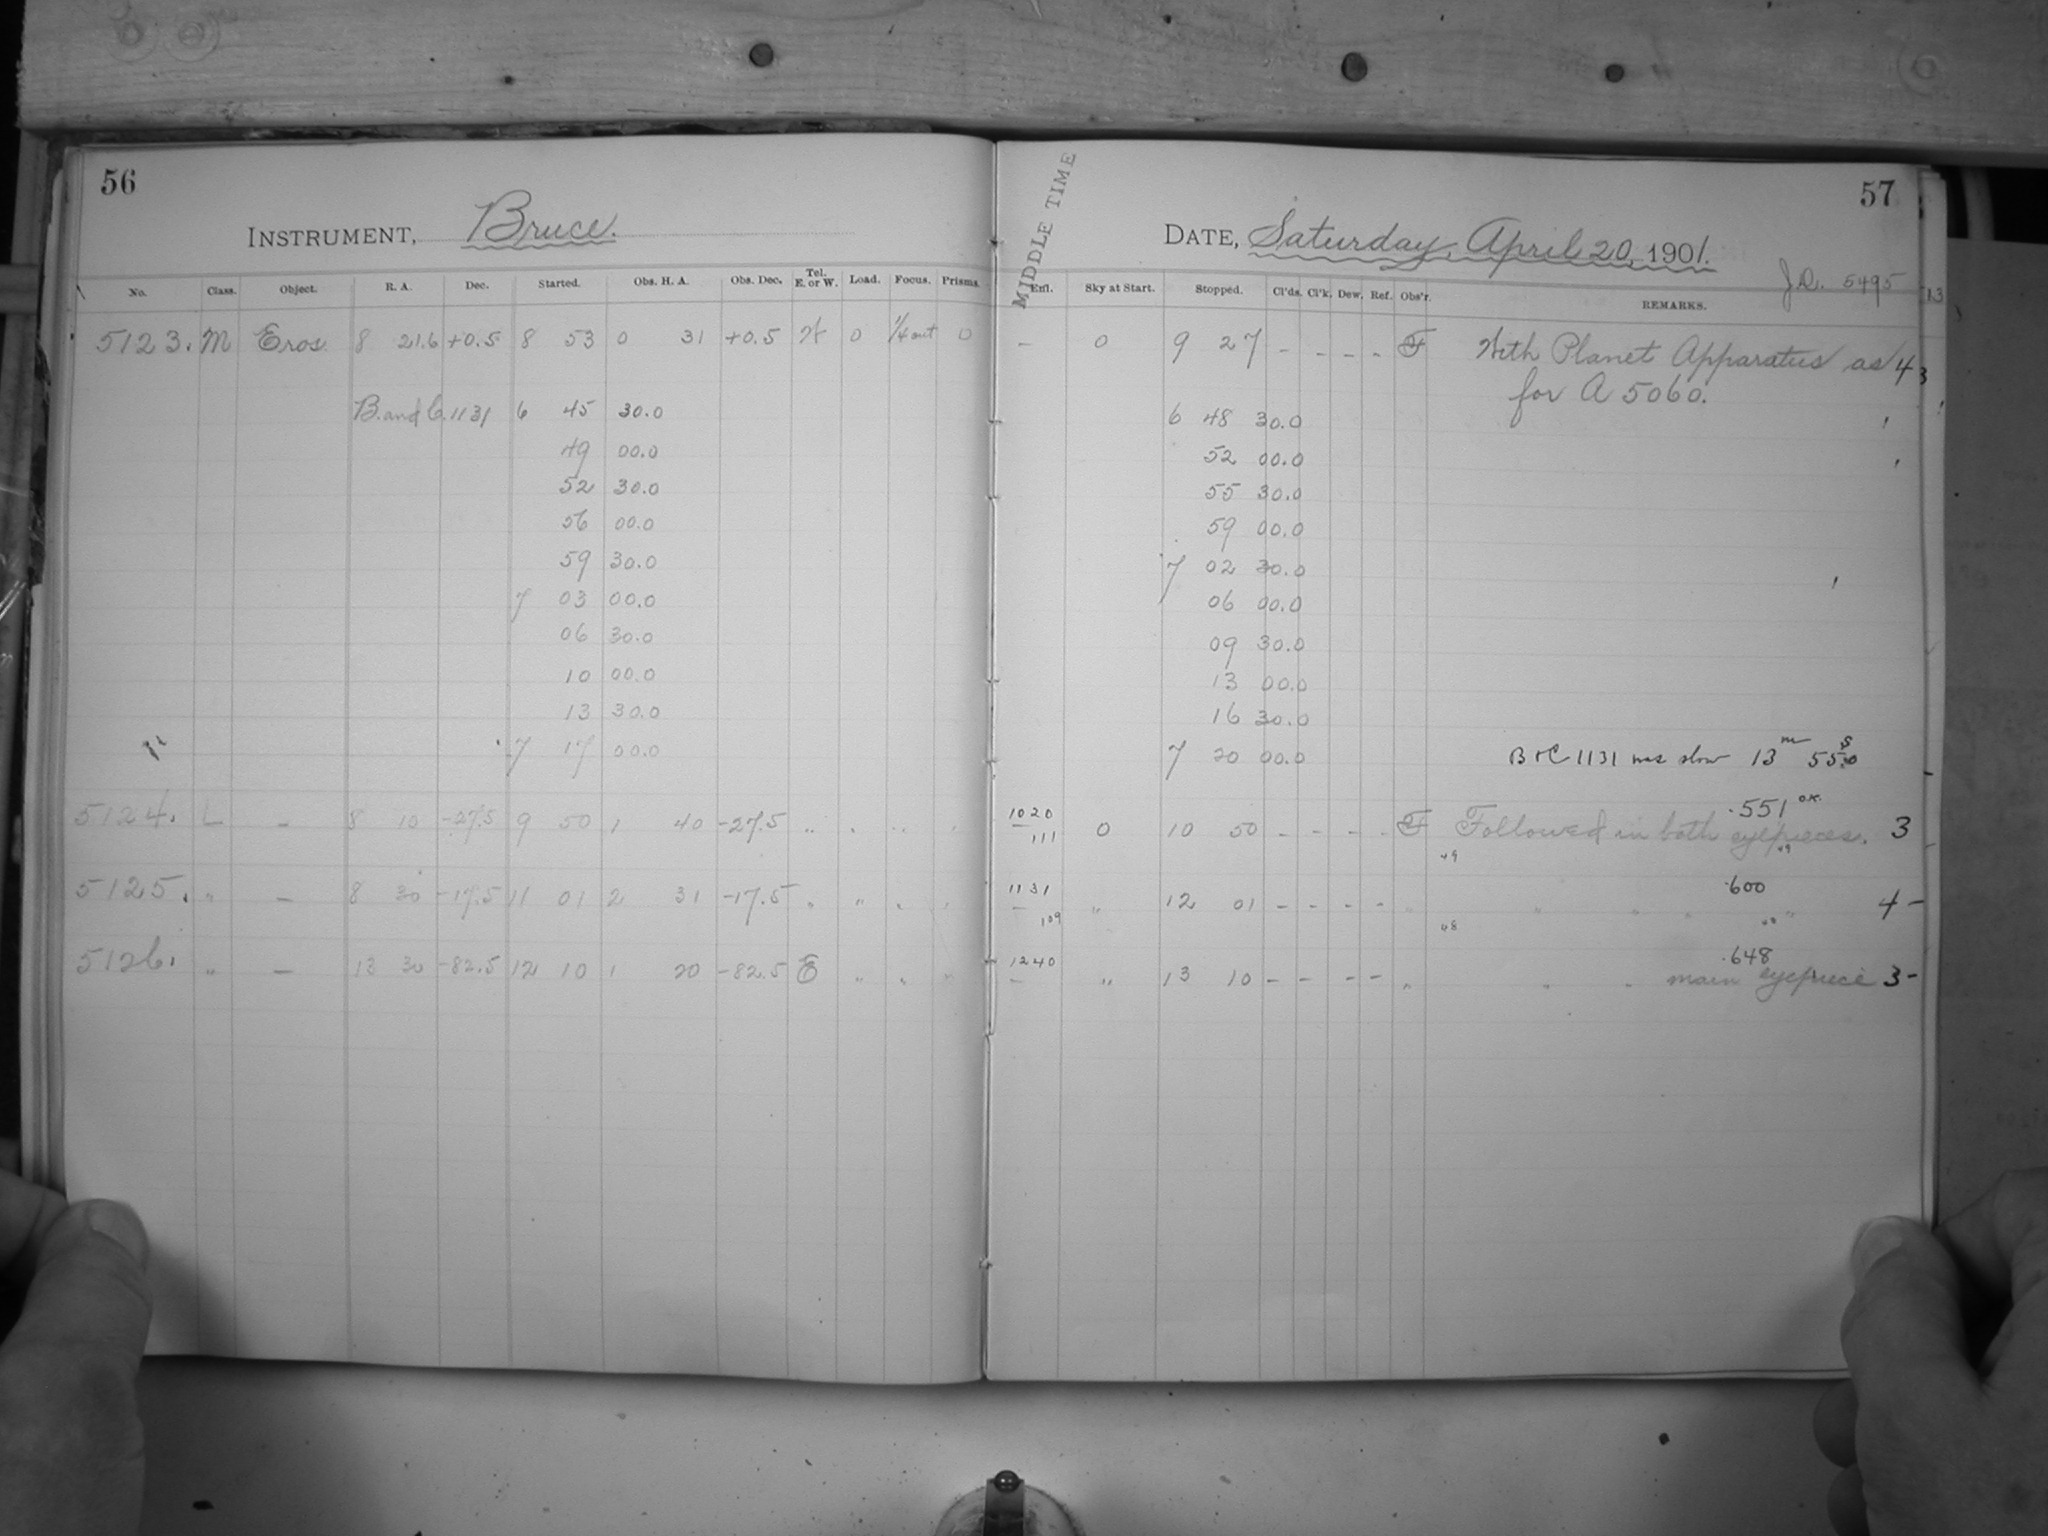 56
INSTRUMENT, Bruce.
No. Class. Object. R. A. Dec. Started. Obs. H. A. Obs. Dec. Tel. E. or W. Load. Focus. Prisms.
5123. M Eros 8 21.6 +0.5 8 53 0 31 +0.5 W 0 1/4 out 0
B. and C. 1131 6 45 30.0
49 00.0
52 30.0
56 00.0
59 30.0
7 03 00.0
06 30.0
10 00.0
13 30.0
7 17 00.0
5124. L — 8 10 -27.5 9 50 1 40 -27.5 " " " "
5125. " — 8 30 -17.5 11 01 2 31 -17.5 " " " "
5126. " — 13 30 -82.5 12 10 1 20 -82.5 E " " "
57
MIDDLE TIME
DATE, Saturday, April 20, 1901.
J.D. 5495
Exfl. Sky at Start. Stopped. Cl'ds. Cl'k. Dew. Ref. Obs'r. REMARKS.
— 0 9 27 - - - - F With Planet Apparatus as 4
for A 5060.
6 48 30.0
52 00.0
55 30.0
59 00.0
7 02 30.0
06 00.0
09 30.0
13 00.0
16 30.0
7 20 00.0 B & C 1131 was slow 13m 55s.0
.551 o.k.
1020 — 111 0 10 50 - - - - F Followed in both eyepieces. 3
49 49
.600
1131 — 109 " 12 01 - - - - " " " " " 4 -
48 48
.648
1240 — " 13 10 - - - - " " " main eyepiece 3 -
13